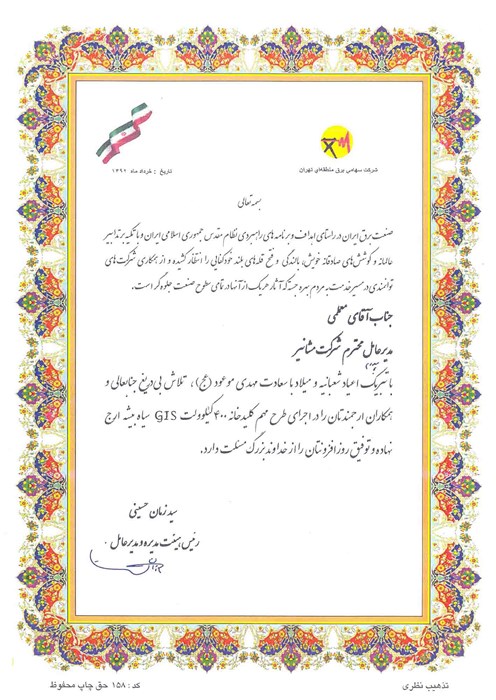 شرکت سهامی برق منطقه‌ای تهران
تاریخ : خرداد ماه ۱۳۹۲
بسمه تعالی
صنعت برق ایران در راستای اهداف و برنامه های راهبردی نظام مقدس جمهوری اسلامی ایران و با تکیه بر تدابیر
عالمانه و کوشش‌های صادقانه خویش، بالندگی و فتح قله‌های بلند خودکفایی را انتظار کشیده و از همکاری شرکت‌های
توانمندی در مسیر خدمت به مردم بهره جسته که آثار هریک از آنها در تمامی سطوح صنعت جلوه گر است.
جناب آقای معلمی
مدیرعامل محترم شرکت مشانیر
با تبریک اعیاد شعبانیه و میلاد با سعادت مهدی موعود (عج)، تلاش بی‌دریغ جنابعالی و
همکاران ارجمندتان را در اجرای طرح مهم کلیدخانه ۴۰۰ کیلوولت GIS سیاه بیشه ارج
نهاده و توفیق روزافزونتان را از خداوند بزرگ مسئلت دارد.
سید زمان حسینی
رئیس هیئت مدیره و مدیرعامل
تذهیب نظری
کد : ۱۵۸ حق چاپ محفوظ